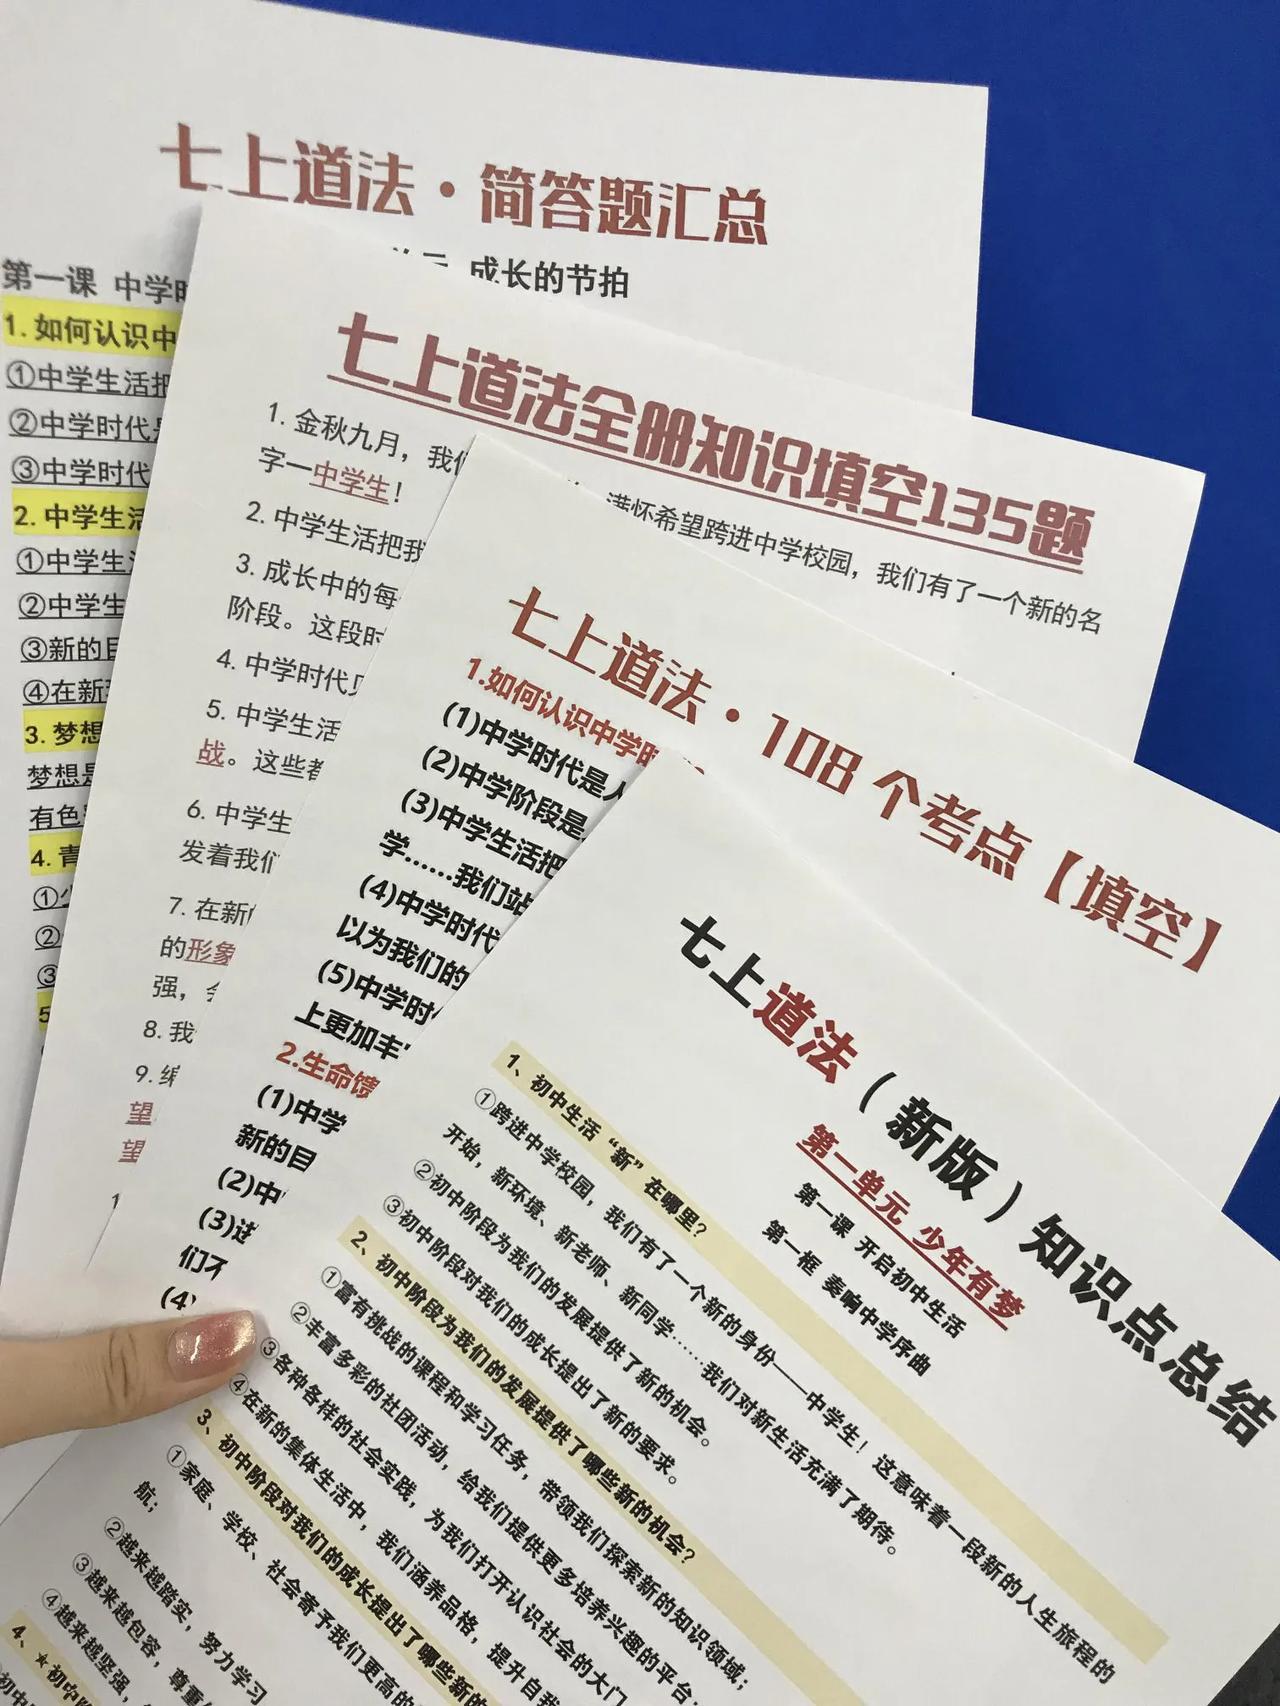 七上道法·简答题汇总
成长的节拍
第一课 中学时
1.如何认识中
①中学生活把
②中学时代是
③中学时代
2.中学生活
①中学生活
②中学生
③新的目
④在新环
3.梦想
梦想是
有色
4.青
①少
②
③
5
七上道法全册知识填空135题
1. 金秋九月，我们 满怀希望跨进中学校园，我们有了一个新的名
字一中学生！
2. 中学生活把我
3. 成长中的每
阶段。这段时
4. 中学时代见
5. 中学生活
战。这些都
6. 中学生
发着我们
7. 在新
的形象
强，
8. 我
9. 编
望
望
七上道法·108个考点【填空】
1.如何认识中学时
(1)中学时代是人
(2)中学阶段是
(3)中学生活把
学……我们站
(4)中学时代
以为我们的
(5)中学时
上更加丰
2.生命馈
(1)中学
新的目
(2)中
(3)进
们不
(4)
七上道法（新版）知识点总结
第一单元 少年有梦
第一课 开启初中生活
第一框 奏响中学序曲
1、初中生活“新”在哪里？
①跨进中学校园，我们有了一个新的身份——中学生！这意味着一段新的人生旅程的
开始，新环境、新老师、新同学……我们对新生活充满了期待。
②初中阶段为我们的发展提供了新的机会。
③初中阶段对我们的成长提出了新的要求。
2、初中阶段为我们的发展提供了哪些新的机会？
①富有挑战的课程和学习任务，带领我们探索新的知识领域；
②丰富多彩的社团活动，给我们提供更多培养兴趣的平台，
③各种各样的社会实践，为我们打开认识社会的大门
④在新的集体生活中，我们涵养品格，提升自我
3、初中阶段对我们的成长提出了哪些新的
①家庭、学校、社会寄予我们更高的
航；
②越来越踏实，努力学习
③越来越包容，尊重
④越来越坚强，
4、★初中阶
初中